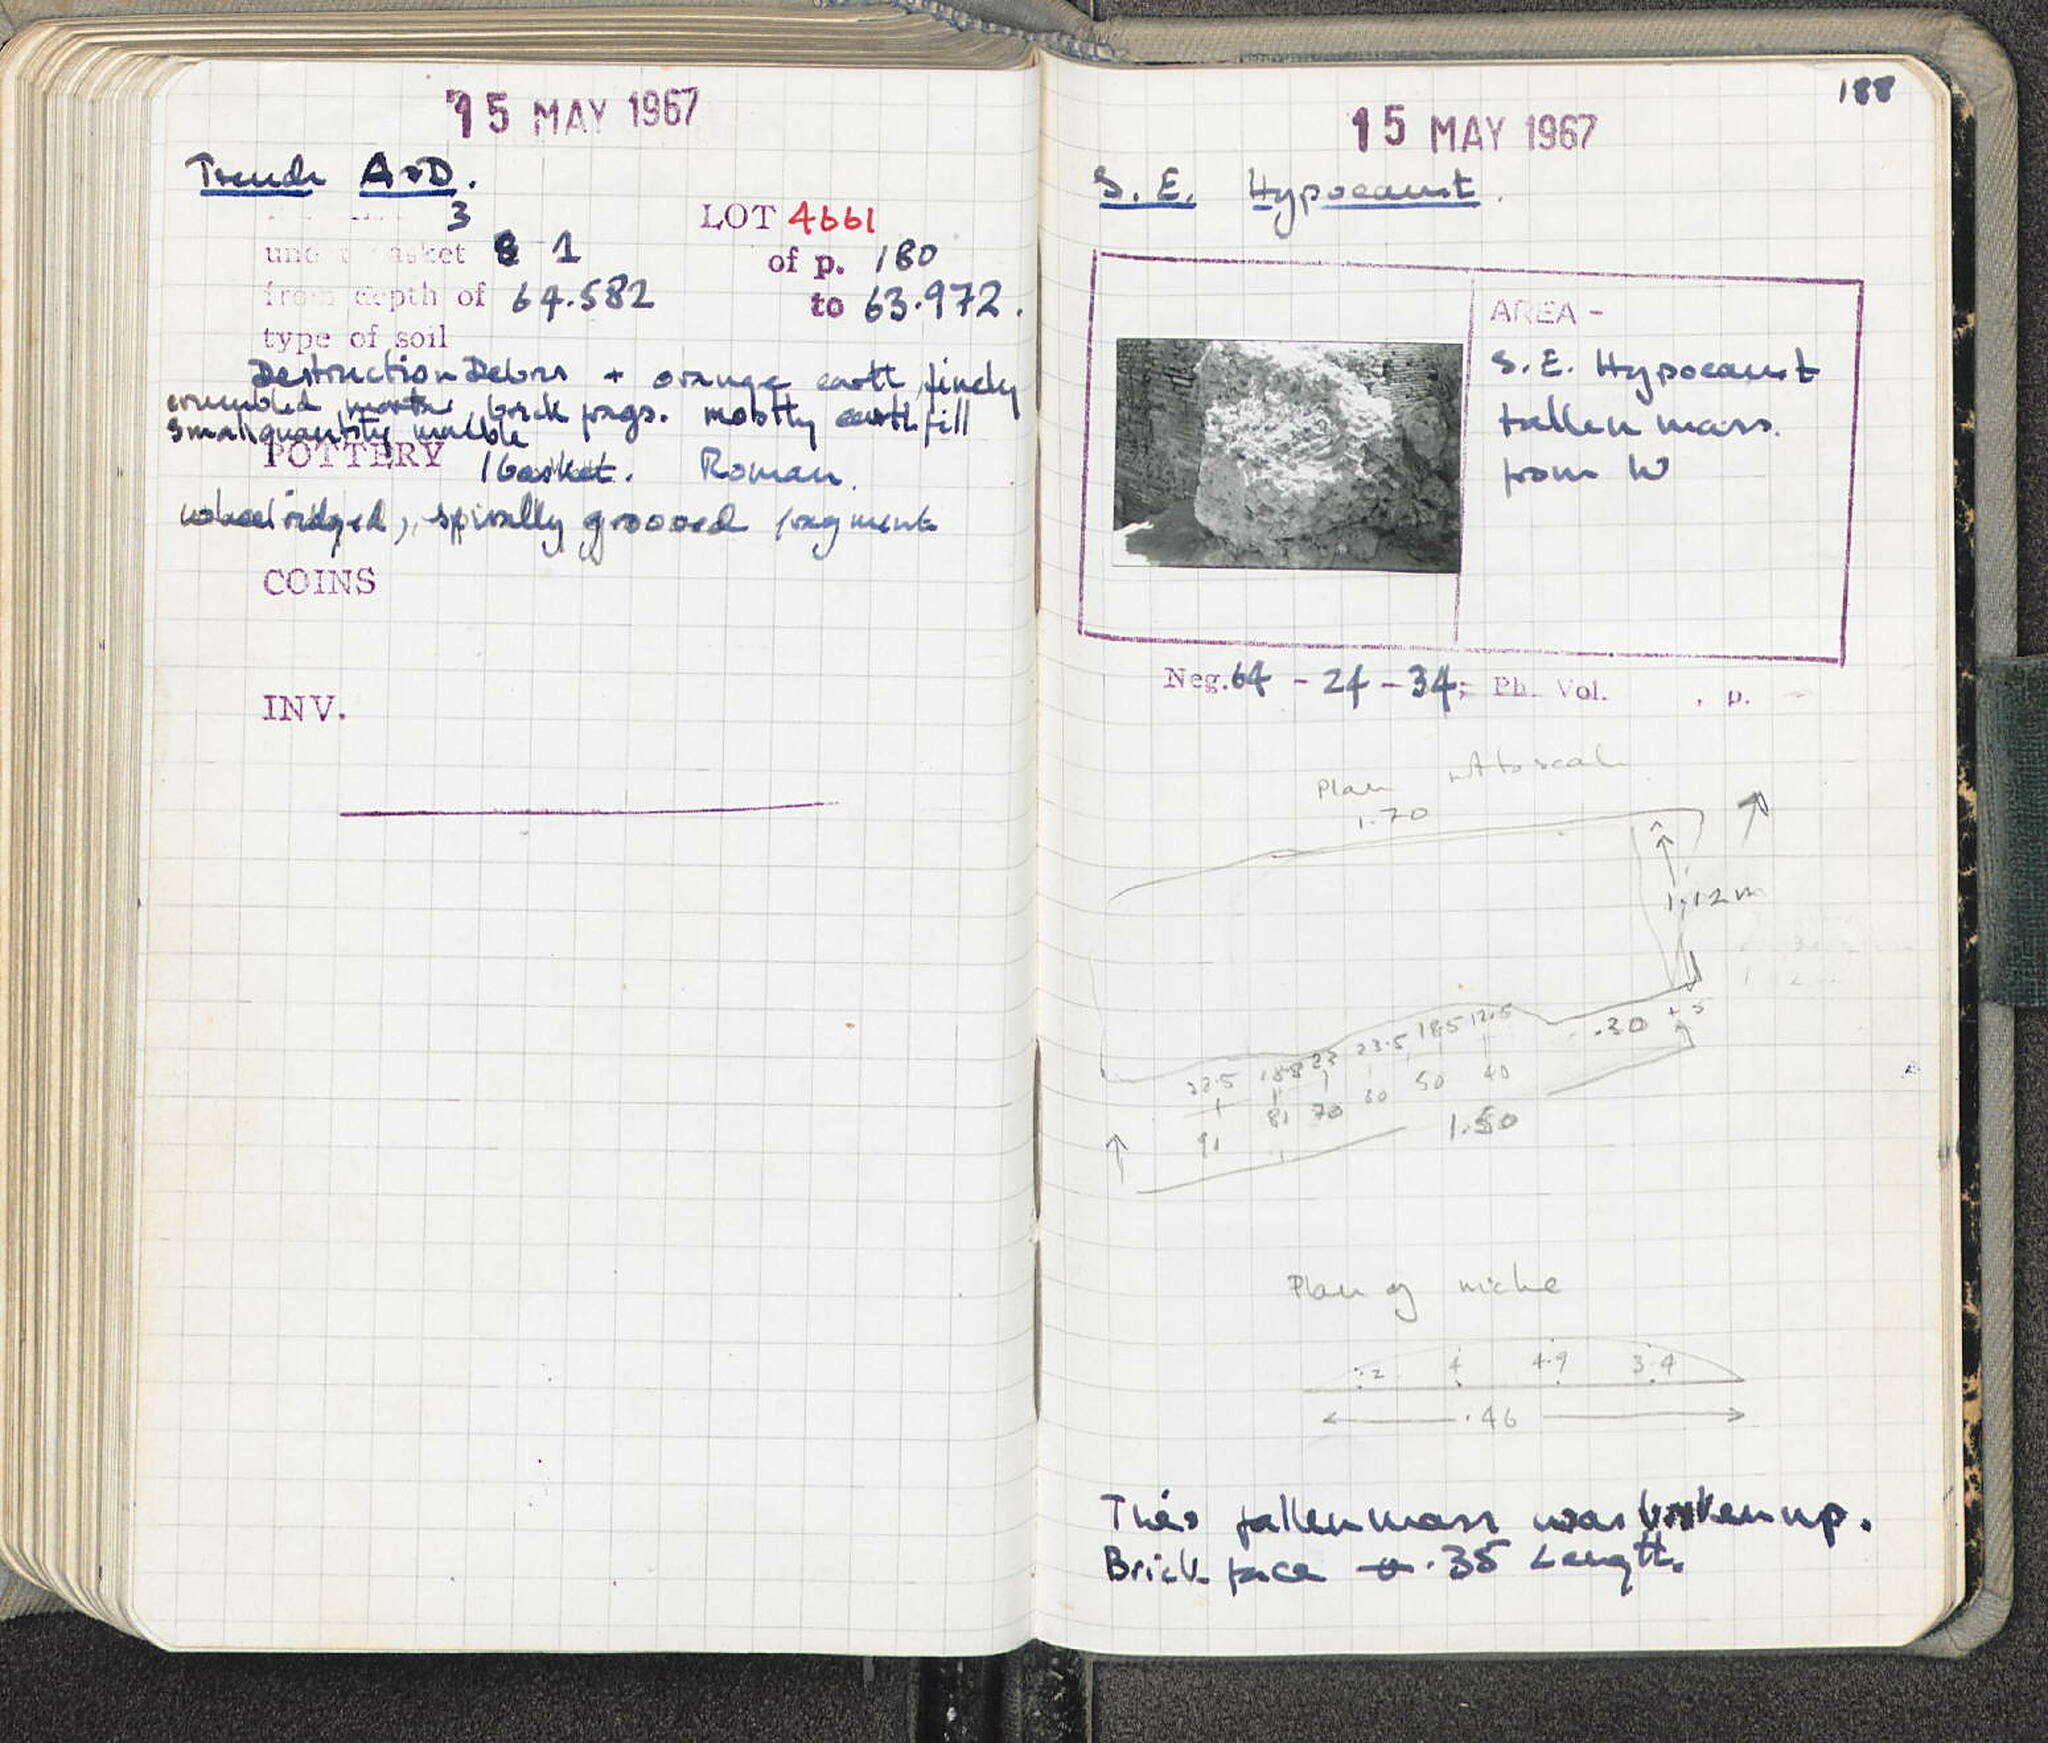 15 MAY 1967
Trench A+D.
3
LOT 4661
under basket 8 1
of p. 180
from depth of 64.582
to 63.972.
type of soil
Destruction Debris + orange earth, finely
crumbled mortar, brick frags. mostly earth fill
small quantity marble
POTTERY 1 basket. Roman.
wheelridged, spirally grooved fragments
COINS
INV.
188
15 MAY 1967
S. E. Hypocaust.
AREA -
S. E. Hypocaust
fallen mass.
from W
Neg. 64 - 24 - 34; Ph. Vol. , p.
Plan not to scale
1.70
1.12 m
.30 + 5
22.5 188 23 23.5 18.5 12.5
91 81 70 60 50 40
1.50
Plan of niche
.2 4 4.9 3.4
.46
This fallen mass was broken up.
Brick face .35 Length.